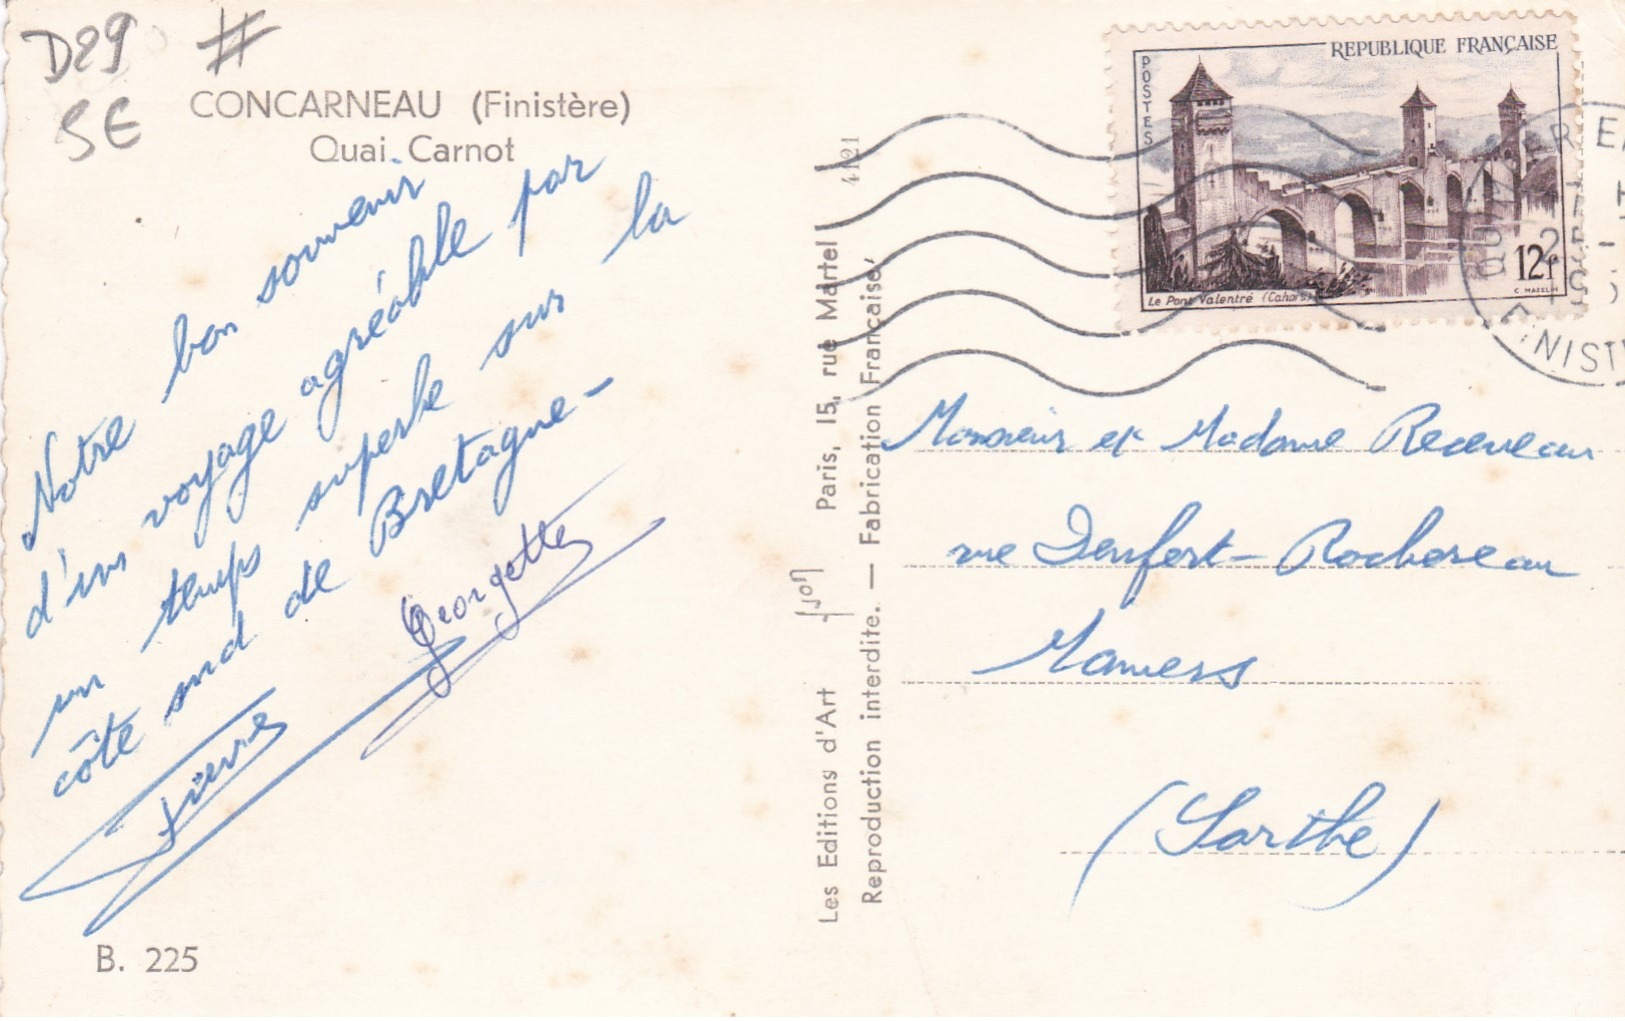 D29 #
5€
CONCARNEAU (Finistère)
Quai Carnot
Notre bon souvenir
d'un voyage agréable par
un temps superbe sur la
côte sud de Bretagne -
Georgette
Pierre
B. 225
Les Editions d'Art Yvon Paris, 15, rue Martel 4121
Reproduction interdite. — Fabrication Française
REPUBLIQUE FRANÇAISE
POSTES
12F
Le Pont Valentré (Cahors)
C. MAZELIN
FINIST
Monsieur et Madame
rue Denfert-Rochereau
Mamers
(Sarthe)